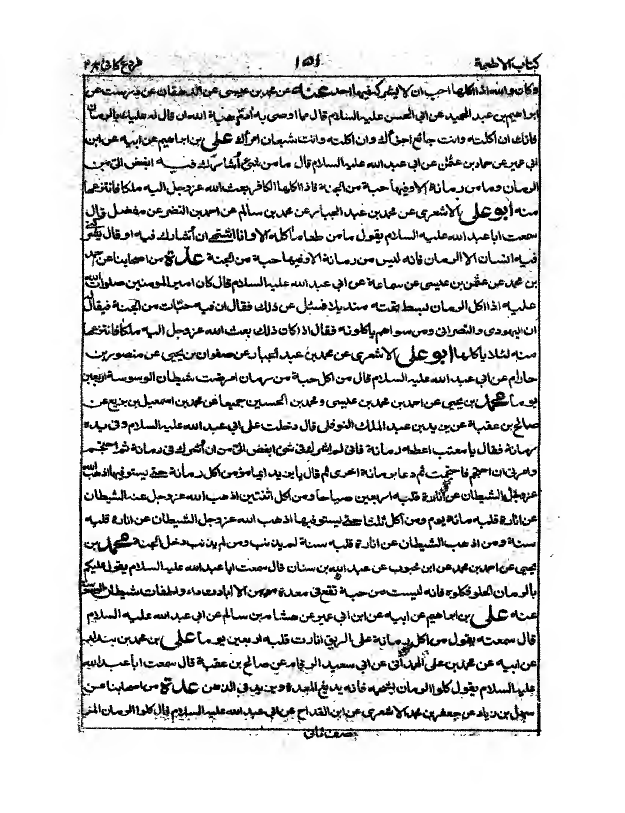 كتاب الاطعمة ١٥١ فروع كافى
وكان والله اذا اكلها احب ان لا يشركه فيها احد عنه عن محمد بن عيسى عن الدهقان عن درست عن
ابراهيم بن عبد الحميد عن ابى الحسن عليه السلام قال مما اوصى به آدم هبة الله ان قال له عليك بالرمان
فانك ان اكلته وانت جائع اجزأك وان اكلته وانت شبعان امرأك على بن ابراهيم عن ابيه عن ابن
ابى عمير عن حماد بن عثمان عن ابى عبد الله عليه السلام قال ما من شىء أشارك فيه ابغض الى من
الرمان وما من رمانة الا وفيها حبة من الجنة فاذا اكلها الكافر بعث الله عز وجل اليه ملكا فانتزعها
منه ابو على الاشعرى عن محمد بن عبد الجبار عن محمد بن سالم عن احمد بن النضر عن مفضل قال
سمعت ابا عبد الله عليه السلام يقول ما من طعام آكله الا وانا اشتهى ان أشارك فيه او قال يشركنى
فيه انسان الا الرمان فانه ليس من رمانة الا وفيها حبة من الجنة عدة من اصحابنا عن احمد
بن محمد عن عثمن بن عيسى عن سماعة عن ابى عبد الله عليه السلام قال كان امير المومنين صلوات الله
عليه اذا اكل الرمان بسط تحته منديلا فسئل عن ذلك فقال ان فيه حبات من الجنة فيقال
ان اليهودى والنصرانى ومن سواهم ياكلونه فقال اذا كان ذلك بعث الله عز وجل اليه ملكا فانتزعها
منه لئلا ياكلها ابو على الاشعرى عن محمد بن عبد الجبار عن صفوان بن يحيى عن منصور بن
حازم عن ابى عبد الله عليه السلام قال من اكل حبة من رمان امرضت شيطان الوسوسة اربعين
يوما محمد بن يحيى عن احمد بن محمد بن عيسى ومحمد بن الحسين جميعا عن محمد بن اسمعيل بن بزيع عن
صالح بن عقبة عن يزيد بن عبد الملك النوفلى قال دخلت على ابى عبد الله عليه السلام وفى يده
رمانة فقال يا معتب اعطه رمانة فانى لم اشرك فى شئ ابغض الى من ان أشرك فى رمانة ثم احتجم
وامرنى ان احتجم فاحتجمت ثم دعا برمانة اخرى ثم قال يا يزيد ايما مؤمن اكل رمانة حتى يستوفيها اذهب الله
عز وجل الشيطان عن انارة قلبه اربعين صباحا ومن اكل اثنتين اذهب الله عز وجل عنه الشيطان
عن انارة قلبه مائة يوم ومن اكل ثلثا حتى يستوفيها اذهب الله عز وجل الشيطان عن انارة قلبه
سنة ومن اذهب الشيطان عن انارة قلبه سنة لم يذنب ومن لم يذنب دخل الجنة محمد بن
يحيى عن احمد بن محمد عن ابن محبوب عن عبد الله بن سنان قال سمعت ابا عبد الله عليه السلام يقول عليكم
بالرمان الحلو فكلوه فانه ليست من حبة تقع فى معدة مؤمن الا ابادت داء واطفات شيطان الوسوسة
عنه على بن ابراهيم عن ابيه عن ابن ابى عمير عن هشام بن سالم عن ابى عبد الله عليه السلام
قال سمعته يقول من اكل رمانة على الريق انارت قلبه اربعين يوما على بن محمد بن بندار
عن ابيه عن محمد بن على الهمدانى عن ابى سعيد الرقام عن صالح بن عقبة قال سمعت ابا عبد الله
عليه السلام يقول كلوا الرمان بشحمه فانه يدبغ المعدة ويزيد فى الذهن عدة من اصحابنا عن
سهل بن زياد عن جعفر بن محمد الاشعرى عن ابن القداح عن ابى عبد الله عليه السلام قال كلوا الرمان المز
نصف ثانى